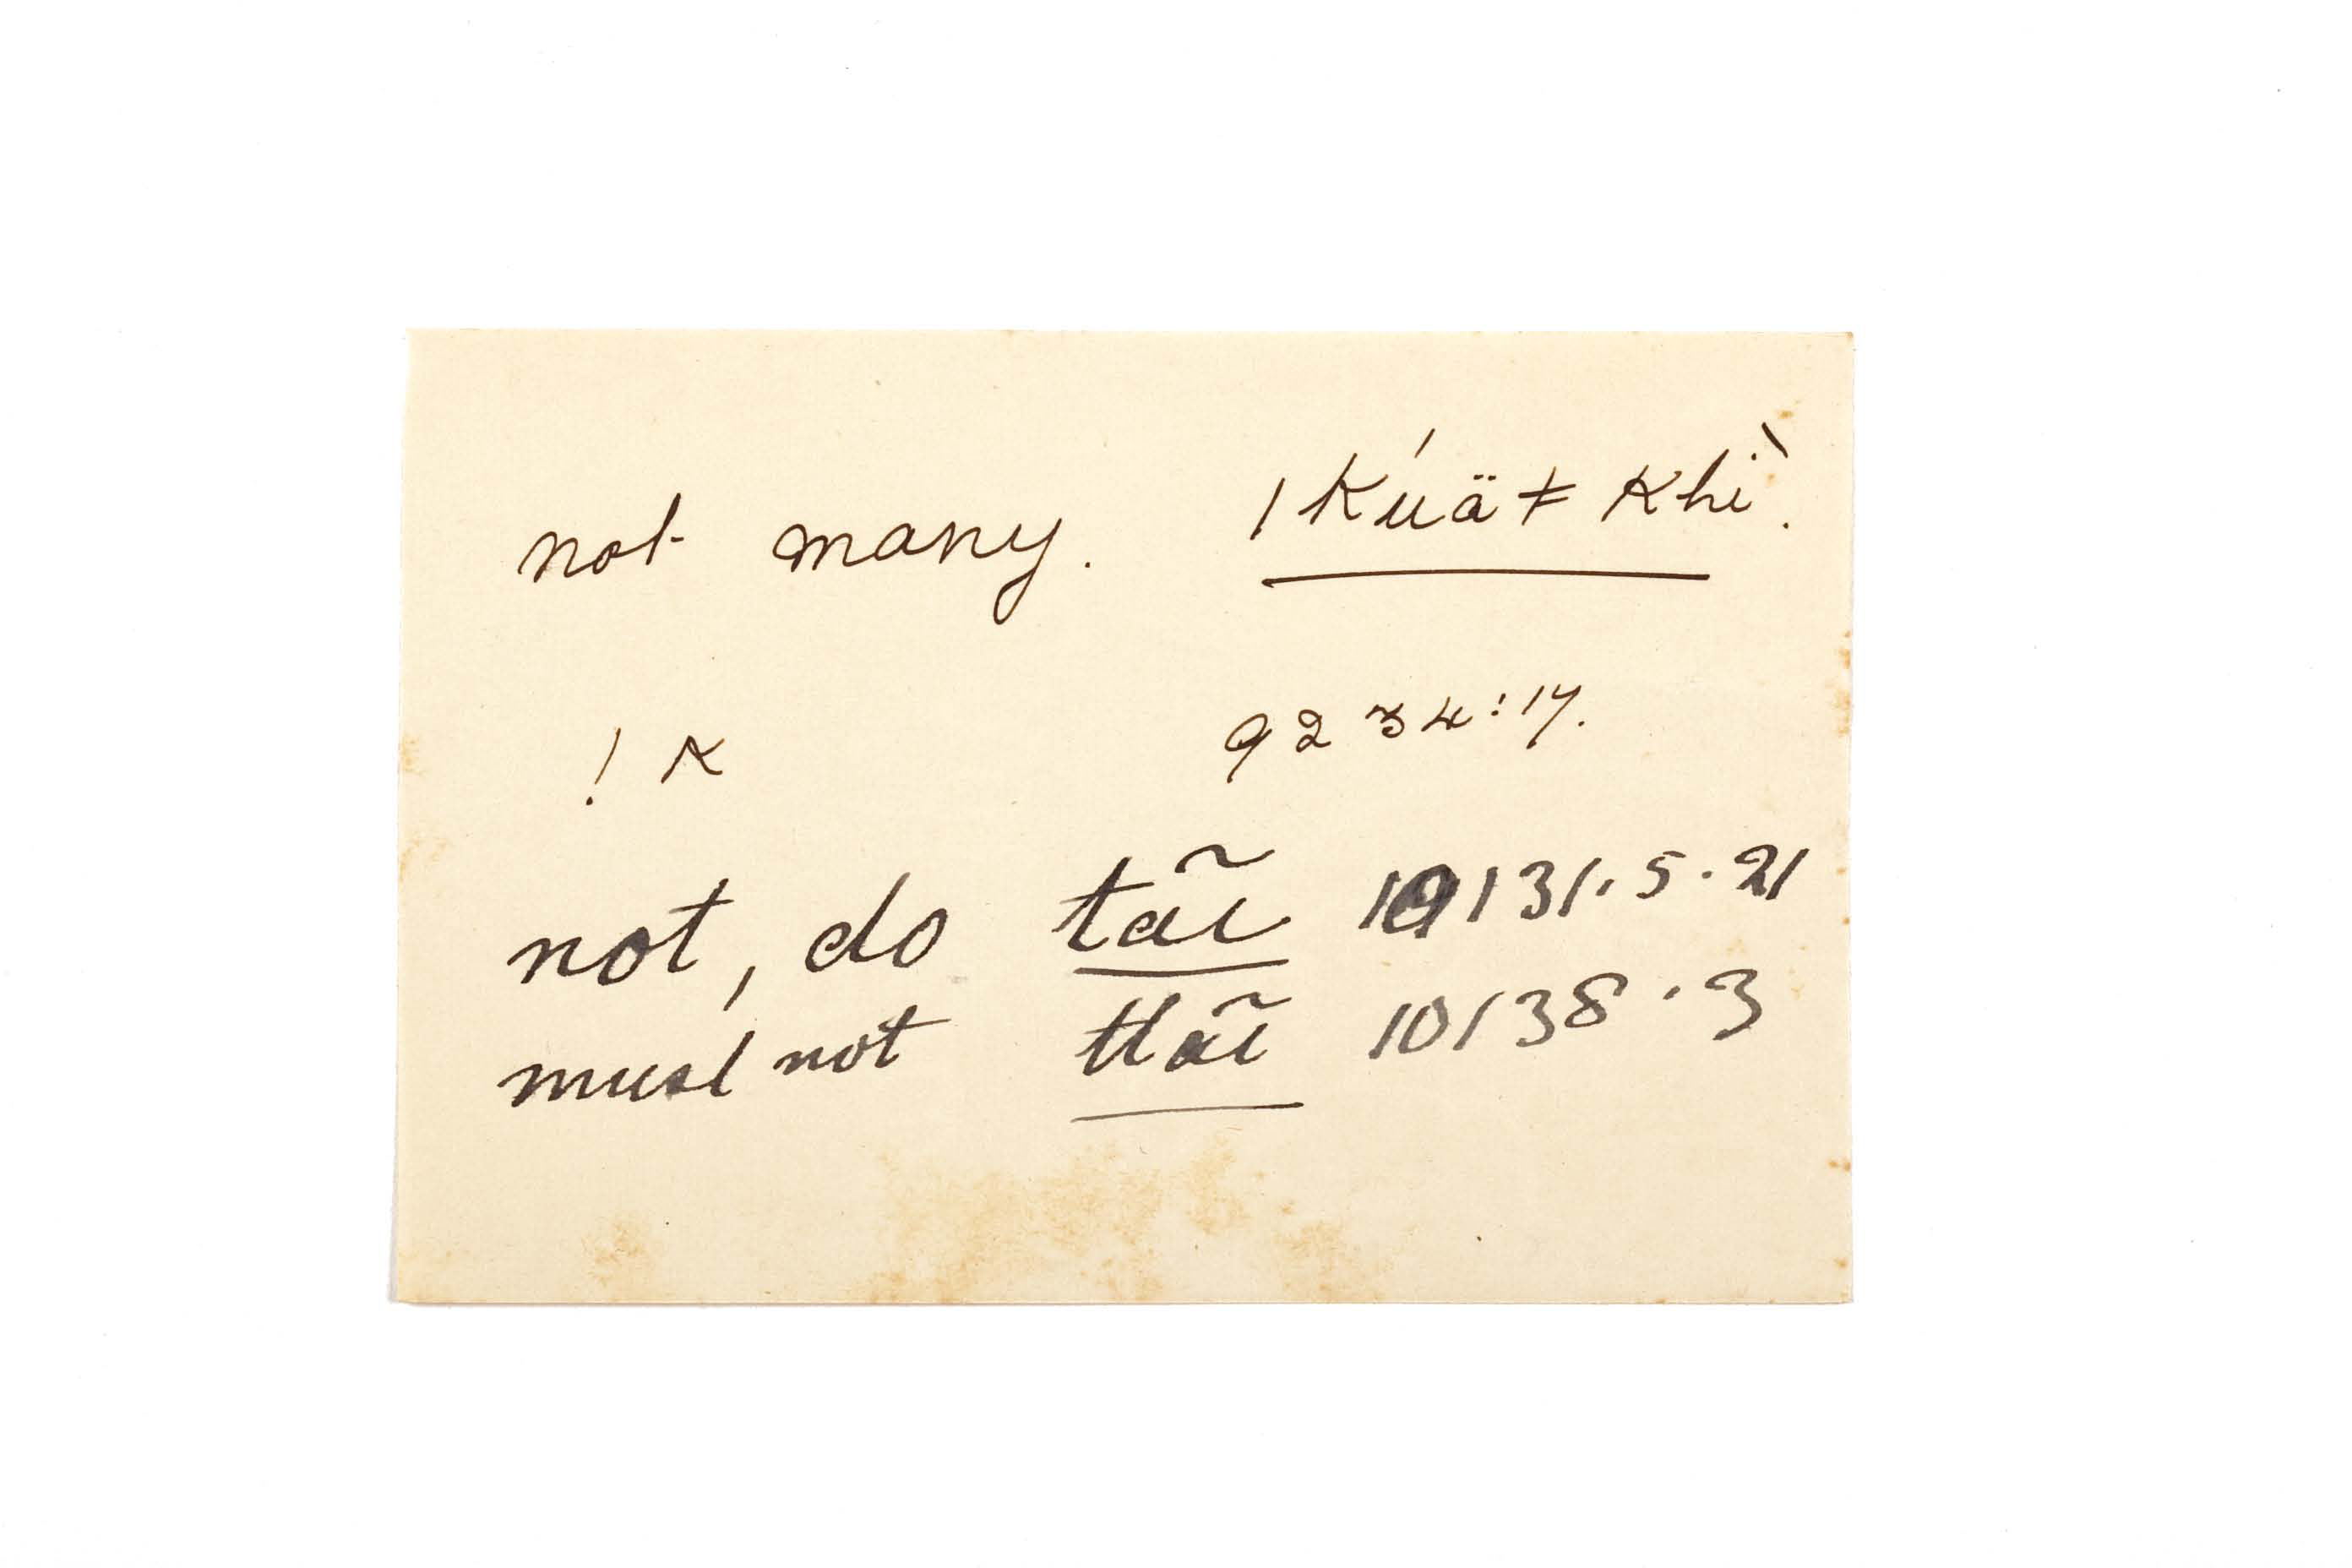 not many. ǀḰuä ǂ Khì.
! K 9234:17.
not, do tãĩ 10131.5.21
must not tlãĩ 10138.3